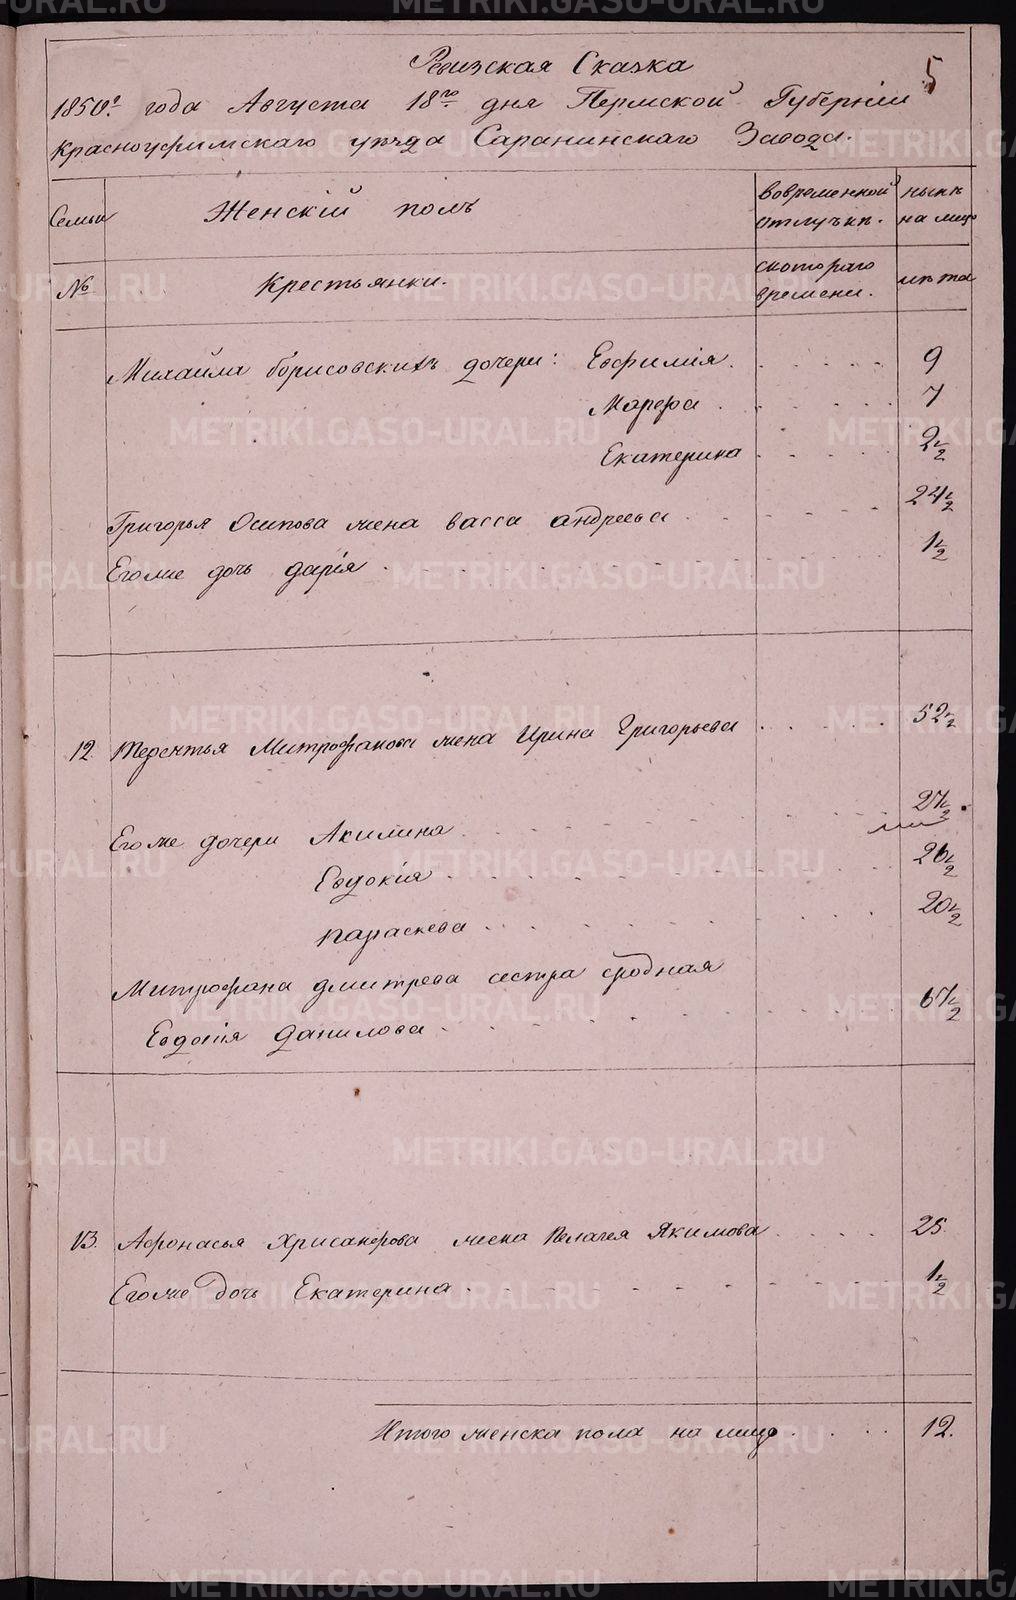 5
Ревизская Сказка
1850го года Августа 18го дня Пермской Губернiи
Красноуфимскаго уѣзда Саранинскаго Завода.
Семьи Женскiй полъ вовременной отлучкѣ. нынѣ на лицо
№ Крестьянки. скотораго времени. лѣта
Михайла борисовскихъ дочери: Евфимiя 9
Марфа 7
Екатерина 2½
Григорья Осипова жена васса андреева 24½
Егоже дочь дарiя 1½
12. Терентья Митрофанова жена Ирина Григорьева 52½
Егоже дочери Акилина 27½
Евдокiя 26½
параскева 20½
Митрофана дмитрева сестра сродная
Евдокiя данилова 67½
13. Афонасья Хрисанфова жена Пелагея Якимова 25.
Егоже дочь Екатерина 1½
Итого женска пола на лицо 12.
METRIKI.GASO-URAL.RU